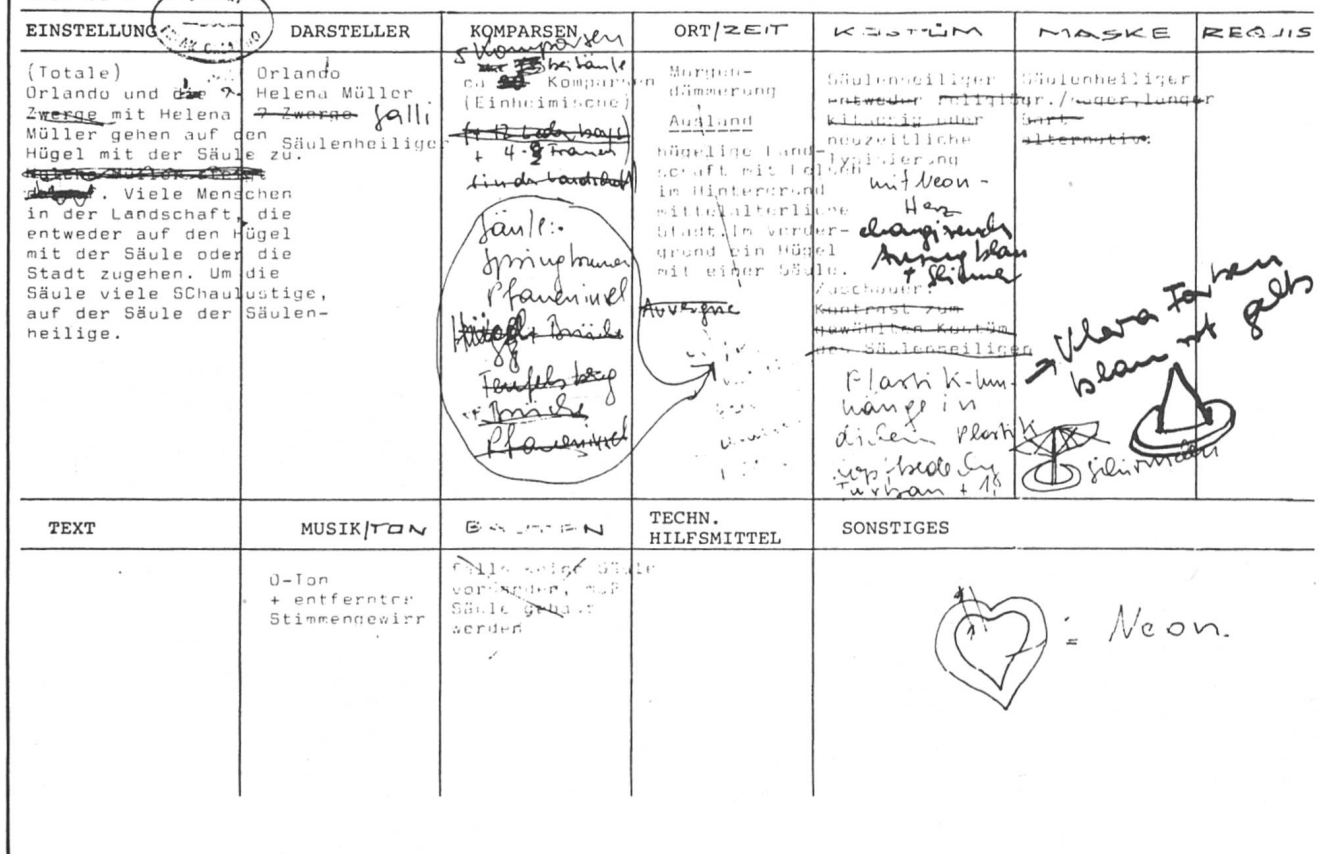 EINSTELLUNG
(Totale)
Orlando und die 7
Zwerge mit Helena
Müller gehen auf den
Hügel mit der Säule zu.
Viele Menschen
in der Landschaft, die
entweder auf den Hügel
mit der Säule oder die
Stadt zugehen. Um die
Säule viele SChaulustige,
auf der Säule der Säulen-
heilige.
DARSTELLER
Orlando
Helena Müller
7 Zwerge Galli
Säulenheiliger
KOMPARSEN
Komparsen
bei Säule
ca Komparsen
(Einheimische)
+ 4-8 Frauen
in der Landschaft
Säule:
Springbrunnen
Pfaueninsel
Brücke
Teufelsberg
Brücke
Pfaueninsel
ORT/ZEIT
Morgen-
dämmerung
Ausland
hügelige Land-
schaft mit Felsen
im Hintergrund
mittelalterliche
Stadt. Im Vorder-
grund ein Hügel
mit einer Säule.
Auvergne
KOSTÜM
Säulenheiliger
entweder religiös
kitschig oder
neuzeitliche
Typisierung
mit Neon-
Herz
changierender
Anzug blau
Zuschauer:
Kontrast zum
gewählten Kostüm
des Säulenheiligen
Plastik-Um-
hänge in
Plastik
Turban +
MASKE
Säulenheiliger
langer
Bart
alternativ:
Klare Farben
blau rot gelb
REQUIS
TEXT
MUSIK/TON
O-Ton
+ entfernter
Stimmengewirr
BAUTEN
falls keine Säule
vorhanden, muß
Säule gebaut
werden
TECHN.
HILFSMITTEL
SONSTIGES
= Neon.